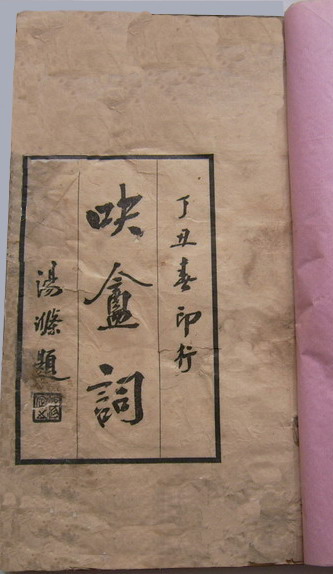 丁丑春印行
吷盦詞
湯滌題